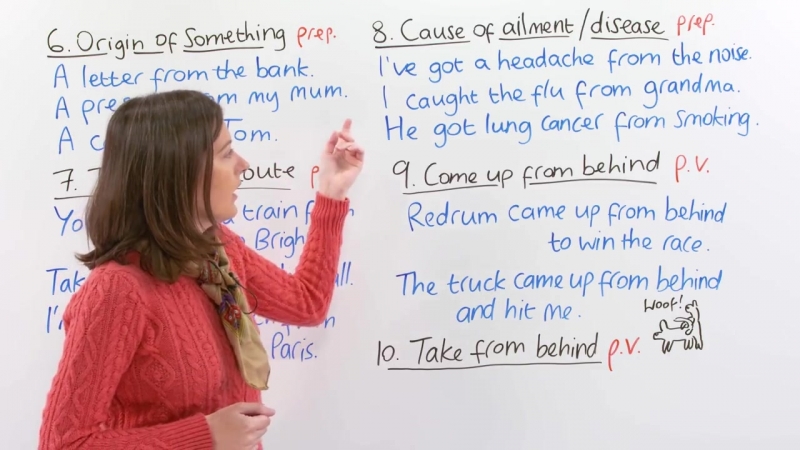 6. Origin of Something prep.
A letter from the bank.
A from my mum.
A Tom.
7. oute
Yo a train
Brigh
Tak
I'm
Paris.
8. Cause of ailment/disease prep.
I've got a headache from the noise.
I caught the flu from grandma.
He got lung cancer from smoking.
9. Come up from behind p.v.
Redrum came up from behind
to win the race.
The truck came up from behind
and hit me.
Woof!
10. Take from behind p.v.